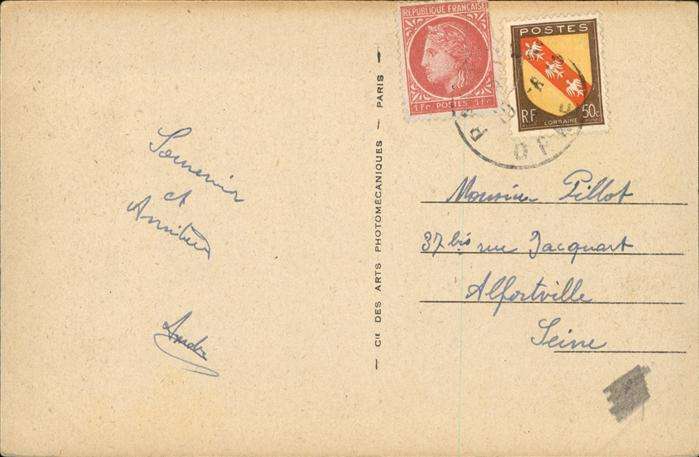 Souvenir
et
Amitiés
André
— Cie DES ARTS PHOTOMÉCANIQUES — PARIS —
REPUBLIQUE FRANÇAISE
1Fr POSTES 1Fr
POSTES
RF 50c
LORRAINE
Monsieur Pillot
37 bis rue Jacquart
Alfortville
Seine